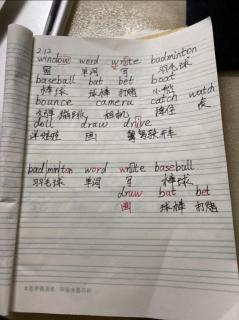 2.12
window word write badminton
窗 单词 写 羽毛球
baseball bat bet boat
棒球 球棒 打赌 小船
bounce camera catch watch
弹跳 相机 接住 表
doll draw drive
洋娃娃 画 驾驶 开车
badminton word write baseball
羽毛球 单词 写 棒球
draw bat bet
画 球棒 打赌